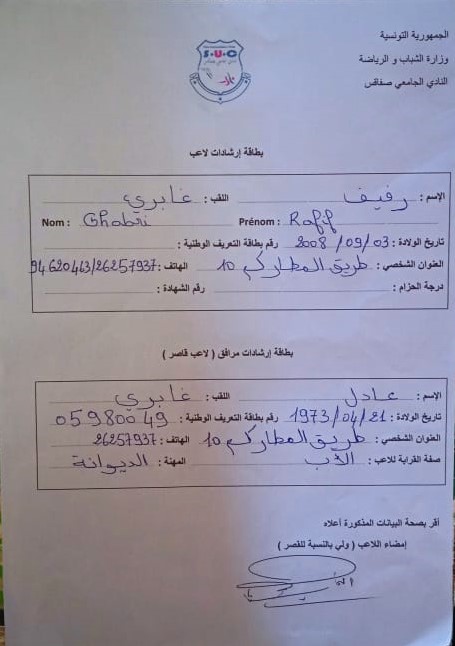 الجمهورية التونسية
وزارة الشباب و الرياضة
النادي الجامعي صفاقس
S.U.C
بطاقة إرشادات لاعب
الإسم : رفيف اللقب : غابري
Nom : Ghabri Prénom : Rafif
تاريخ الولادة : 2008/09/03 رقم بطاقة التعريف الوطنية :
العنوان الشخصي : طريق المطار كم 10 الهاتف : 94620463/26257937
درجة الحزام : رقم الشهادة :
بطاقة إرشادات مرافق ( لاعب قاصر )
الإسم : عادل اللقب : غابري
تاريخ الولادة : 1973/04/21 رقم بطاقة التعريف الوطنية : 05980049
العنوان الشخصي : طريق المطار كم 10 الهاتف : 26257937
صفة القرابة للاعب : الأب المهنة : الديوانة
أقر بصحة البيانات المذكورة أعلاه
إمضاء اللاعب ( ولي بالنسبة للقصر )